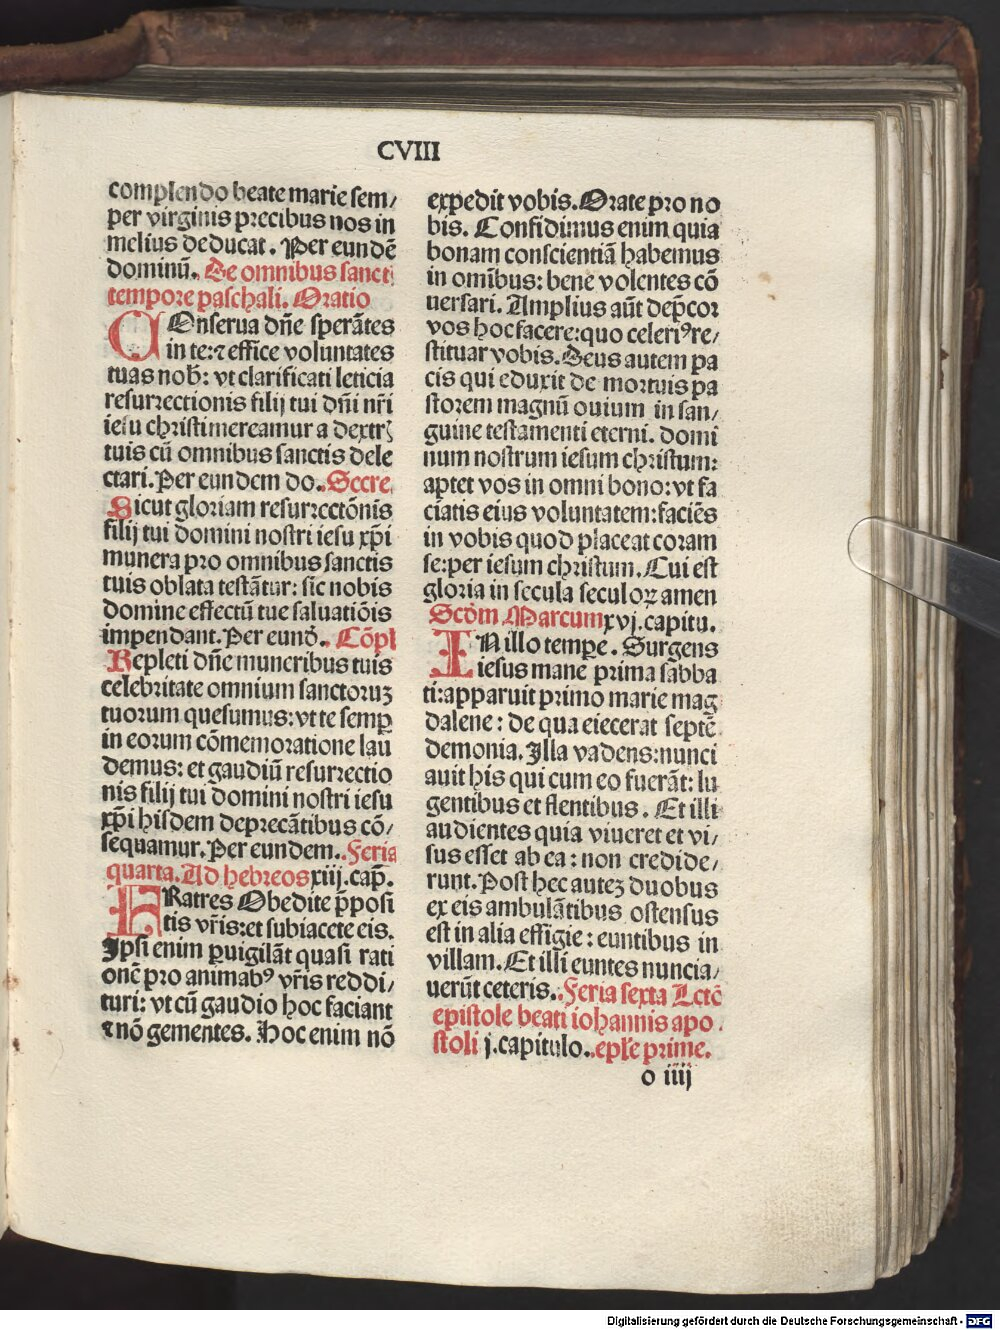 CVIII
complendo beate marie sem/
per virginis precibus nos in
melius deducat. Per eundē
dominū. De omnibus sanct
tempore paschali. Oratio
COnserua dn̄e sperātes
in te: ⁊ effice voluntates
tuas nob̄: vt clarificati leticia
resurrectionis filij tui dn̄i nr̄i
iesu christi mereamur a dextr
tuis cū omnibus sanctis dele
ctari. Per eundem do. Secre
Sicut gloriam resurrectōnis
filij tui domini nostri iesu xp̄i
munera pro omnibus sanctis
tuis oblata testātur: sic nobis
domine effectū tue saluatiōis
impendant. Per eund̄. Cōpl
Repleti dn̄e muneribus tuis
celebritate omnium sanctoruꝫ
tuorum quesumus: vt te semꝑ
in eorum cōmemoratione lau
demus: et gaudiū resurrectio
nis filij tui domini nostri iesu
xp̄i hisdem deprecātibus cō/
sequamur. Per eundem. Feria
quarta. Ad hebreos xiij. cap̄.
FRatres Obedite p̄posi
tis vr̄is: et subiacete eis.
Ipsi enim ꝑuigilāt quasi rati
onē pro animabꝰ vr̄is reddi/
turi: vt cū gaudio hoc faciant
⁊ nō gementes. Hoc enim nō
expedit vobis. Orate pro no
bis. Confidimus enim quia
bonam conscientiā habemus
in omībus: bene volentes cō
uersari. Amplius aūt dep̄cor
vos hoc facere: quo celeriꝰ re/
stituar vobis. Deus autem pa
cis qui eduxit de mortuis pa
storem magnū ouium in san/
guine testamenti eterni. domi
num nostrum iesum christum:
aptet vos in omni bono: vt fa
ciatis eius voluntatem: faciēs
in vobis quod placeat coram
se: per iesum christum. Cui est
gloria in secula seculoꝝ amen
Scōm Marcum xvj. capitu.
IN illo temꝑe. Surgens
iesus mane prima sabba
ti: apparuit primo marie mag
dalene: de qua eiecerat septē
demonia. Illa vadens: nunci
auit his qui cum eo fuerāt: lu
gentibus et flentibus. Et illi
audientes quia viueret et vi/
sus esset ab ea: non credide/
runt. Post hec auteꝫ duobus
ex eis ambulātibus ostensus
est in alia effigie: euntibus in
villam. Et illi euntes nuncia/
uerūt ceteris. Feria sexta Lctō
epistole beati iohannis apo
stoli j. capitulo. epl̄e prime.
o iiij
Digitalisierung gefördert durch die Deutsche Forschungsgemeinschaft - DFG